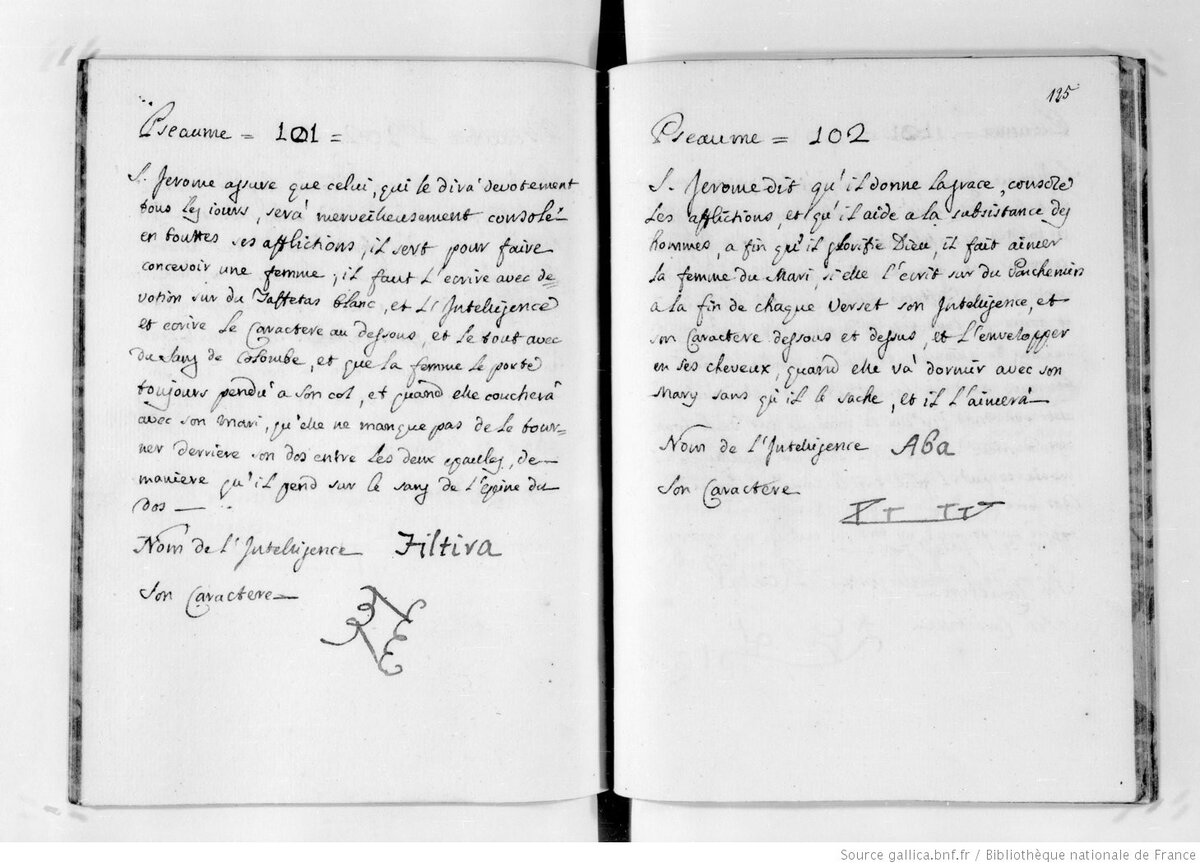 Pseaume = 101 =
S. Jerome assure que celui, qui le dira devotement
tous les jours, sera merveilleusement consolé
en touttes ses afflictions, il sert pour faire
concevoir une femme; il faut l'ecrire avec de-
votion sur du Taffetas blanc, et l'Intelligence
et ecrire le Caractere au dessous, et le tout avec
du sang de Colombe, et que la femme le porte
toujours pendu a son col, et quand elle couchera
avec son Mari, qu'elle ne manque pas de le tour-
ner derriere son dos entre les deux epaulles, de
maniere qu'il pend sur le sang de l'Epine du
dos
Nom de l'Intelligence Filtira
Son Caractere
125
Pseaume = 102
S. Jerome dit qu'il donne la grace, console
les afflictions, et qu'il aide a la subsistance des
hommes, a fin qu'il glorifie Dieu, il fait aimer
la femme du Mari, si elle l'écrit sur du Parchemin
a la fin de chaque verset son Intelligence, et
son Caractere dessous et dessus, et l'envelopper
en ses cheveux, quand elle va dormir avec son
Mary sans qu'il le sache, et il l'aimera
Nom de l'Intelligence Aba
Son Caractere
Source gallica.bnf.fr / Bibliothèque nationale de France